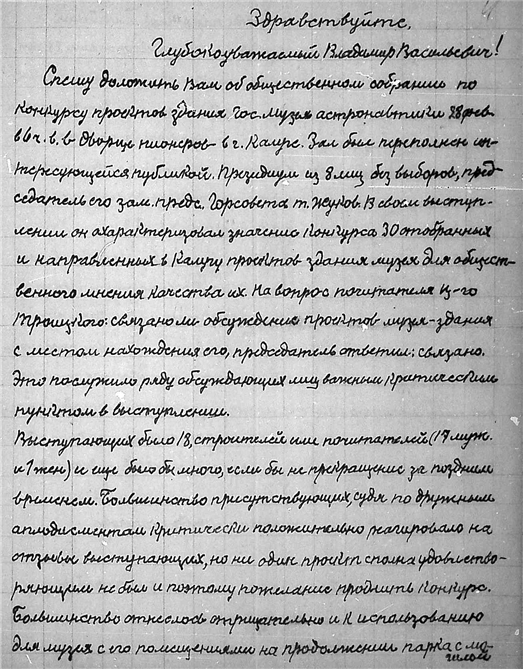 Здравствуйте,
Глубокоуважаемый Владимир Васильевич!
Спешу доложить Вам об общественном собрании по
конкурсу проектов здания Гос. музея астронавтики 28 янв
в 6 ч. в. в Дворце пионеров в г. Калуге. Зал был переполнен ин-
тересующейся публикой. Президиум из 8 лиц без выборов, пред-
седатель его зам. предс. Горсовета т. Жуков. В своем выступ-
лении он охарактеризовал значение конкурса 30 отобранных
и направленных в Калугу проектов здания музея для общест-
венного мнения качества их. На вопрос почитателя
Троицкого: связано ли обсуждение проектов музея-здания
с местом нахождения его, председатель ответил: связано.
Это послужило ряду обсуждающих лиц важным критическим
пунктом в выступлении.
Выступающих было 18, строителей или почитателей (17 муж.
и 1 жен) и еще было бы много, если бы не прекращение за поздним
временем. Большинство присутствующих, судя по дружным
аплодисментам критически положительно реагировало на
отзывы выступающих, но ни один проект сполна удовлетво-
ряющим не был и поэтому пожелание продлить конкурс.
Большинство отнеслось отрицательно и к использованию
для музея с его помещениями на продолжении парка с мо-
гилой